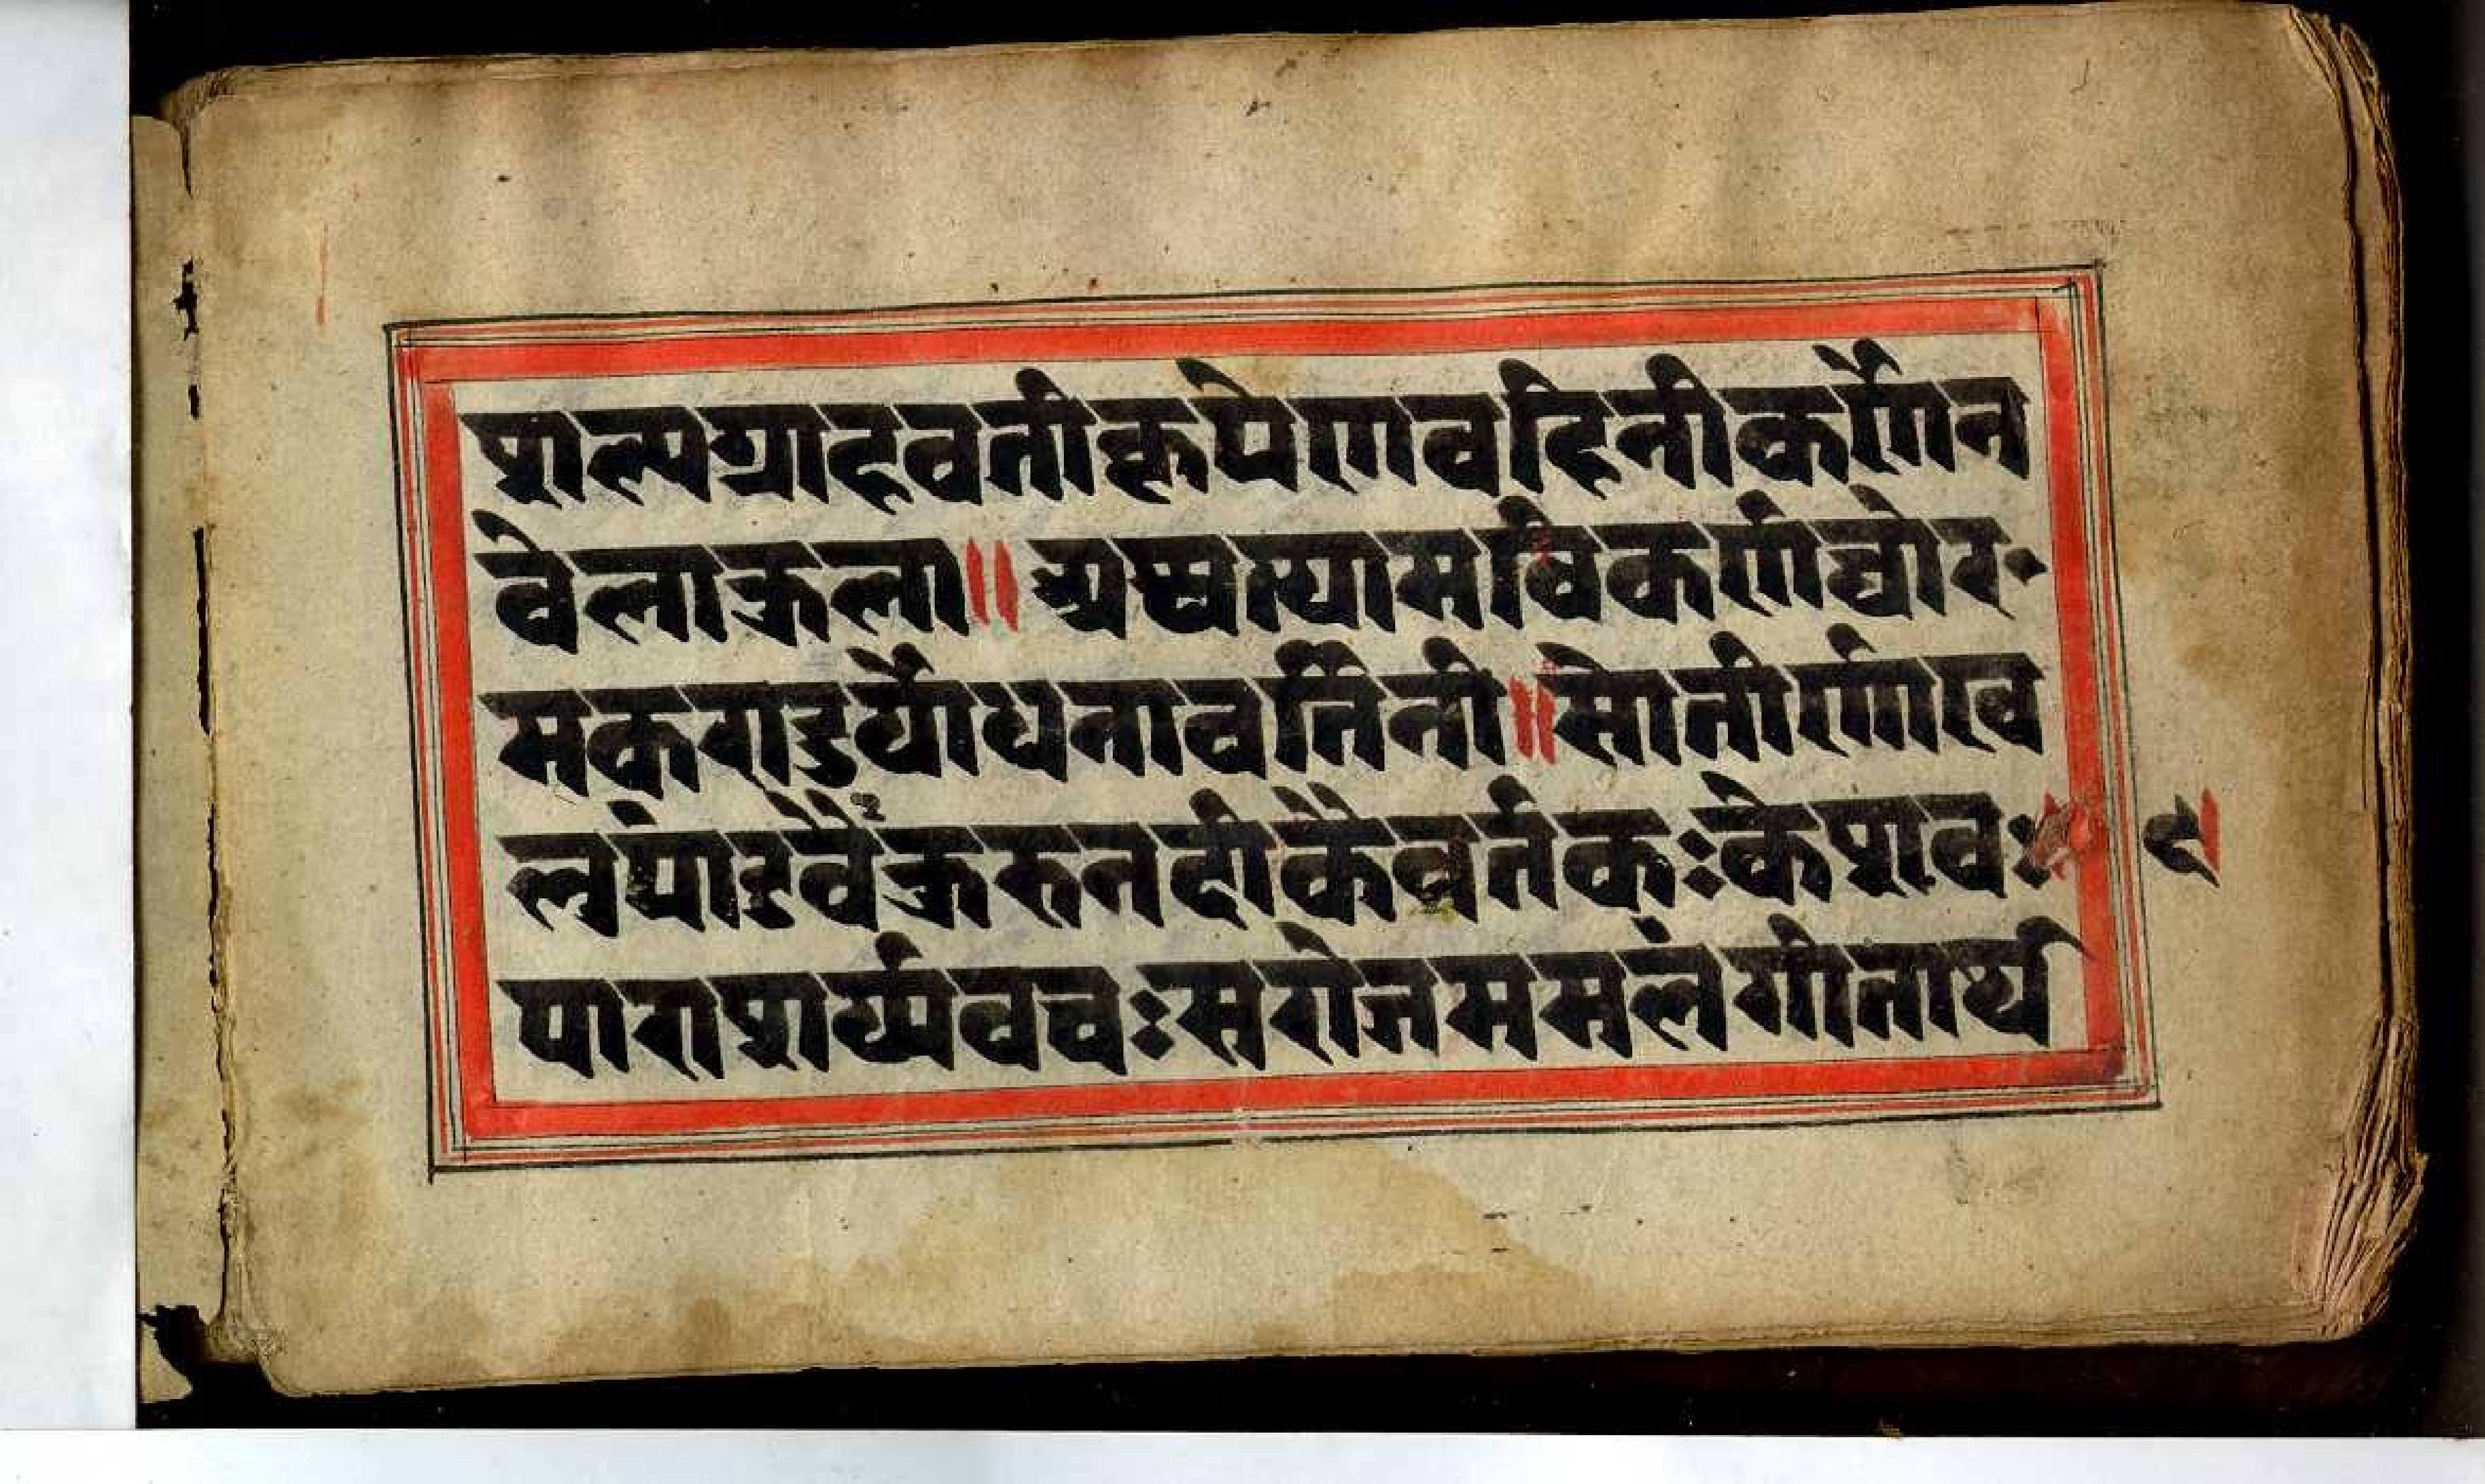 शल्यग्राहवतीकृपेणवहिनीकर्णेन
वेलाकुला॥अश्वत्थामविकर्णघोर
मकरादुर्योधनावर्तिनी॥सोतीर्णाखव
लुपांडवैःकुरुनदीकैवर्तकःकेशवः ९
पाराशर्य्यवचःसरोजममलंगीतार्थ